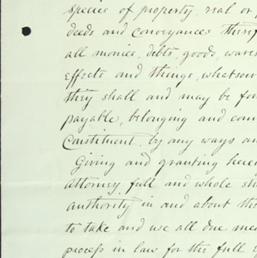 species of property, real or p
deeds and conveyances there
all monies, debts, goods, wares
effects and things, whatsoev
they shall and may be fou
payable, belonging and com
Constituent, by any ways an
Giving and granting here
attorney full and whole sh
authority in and about the
to take and use all due me
process in law for the full